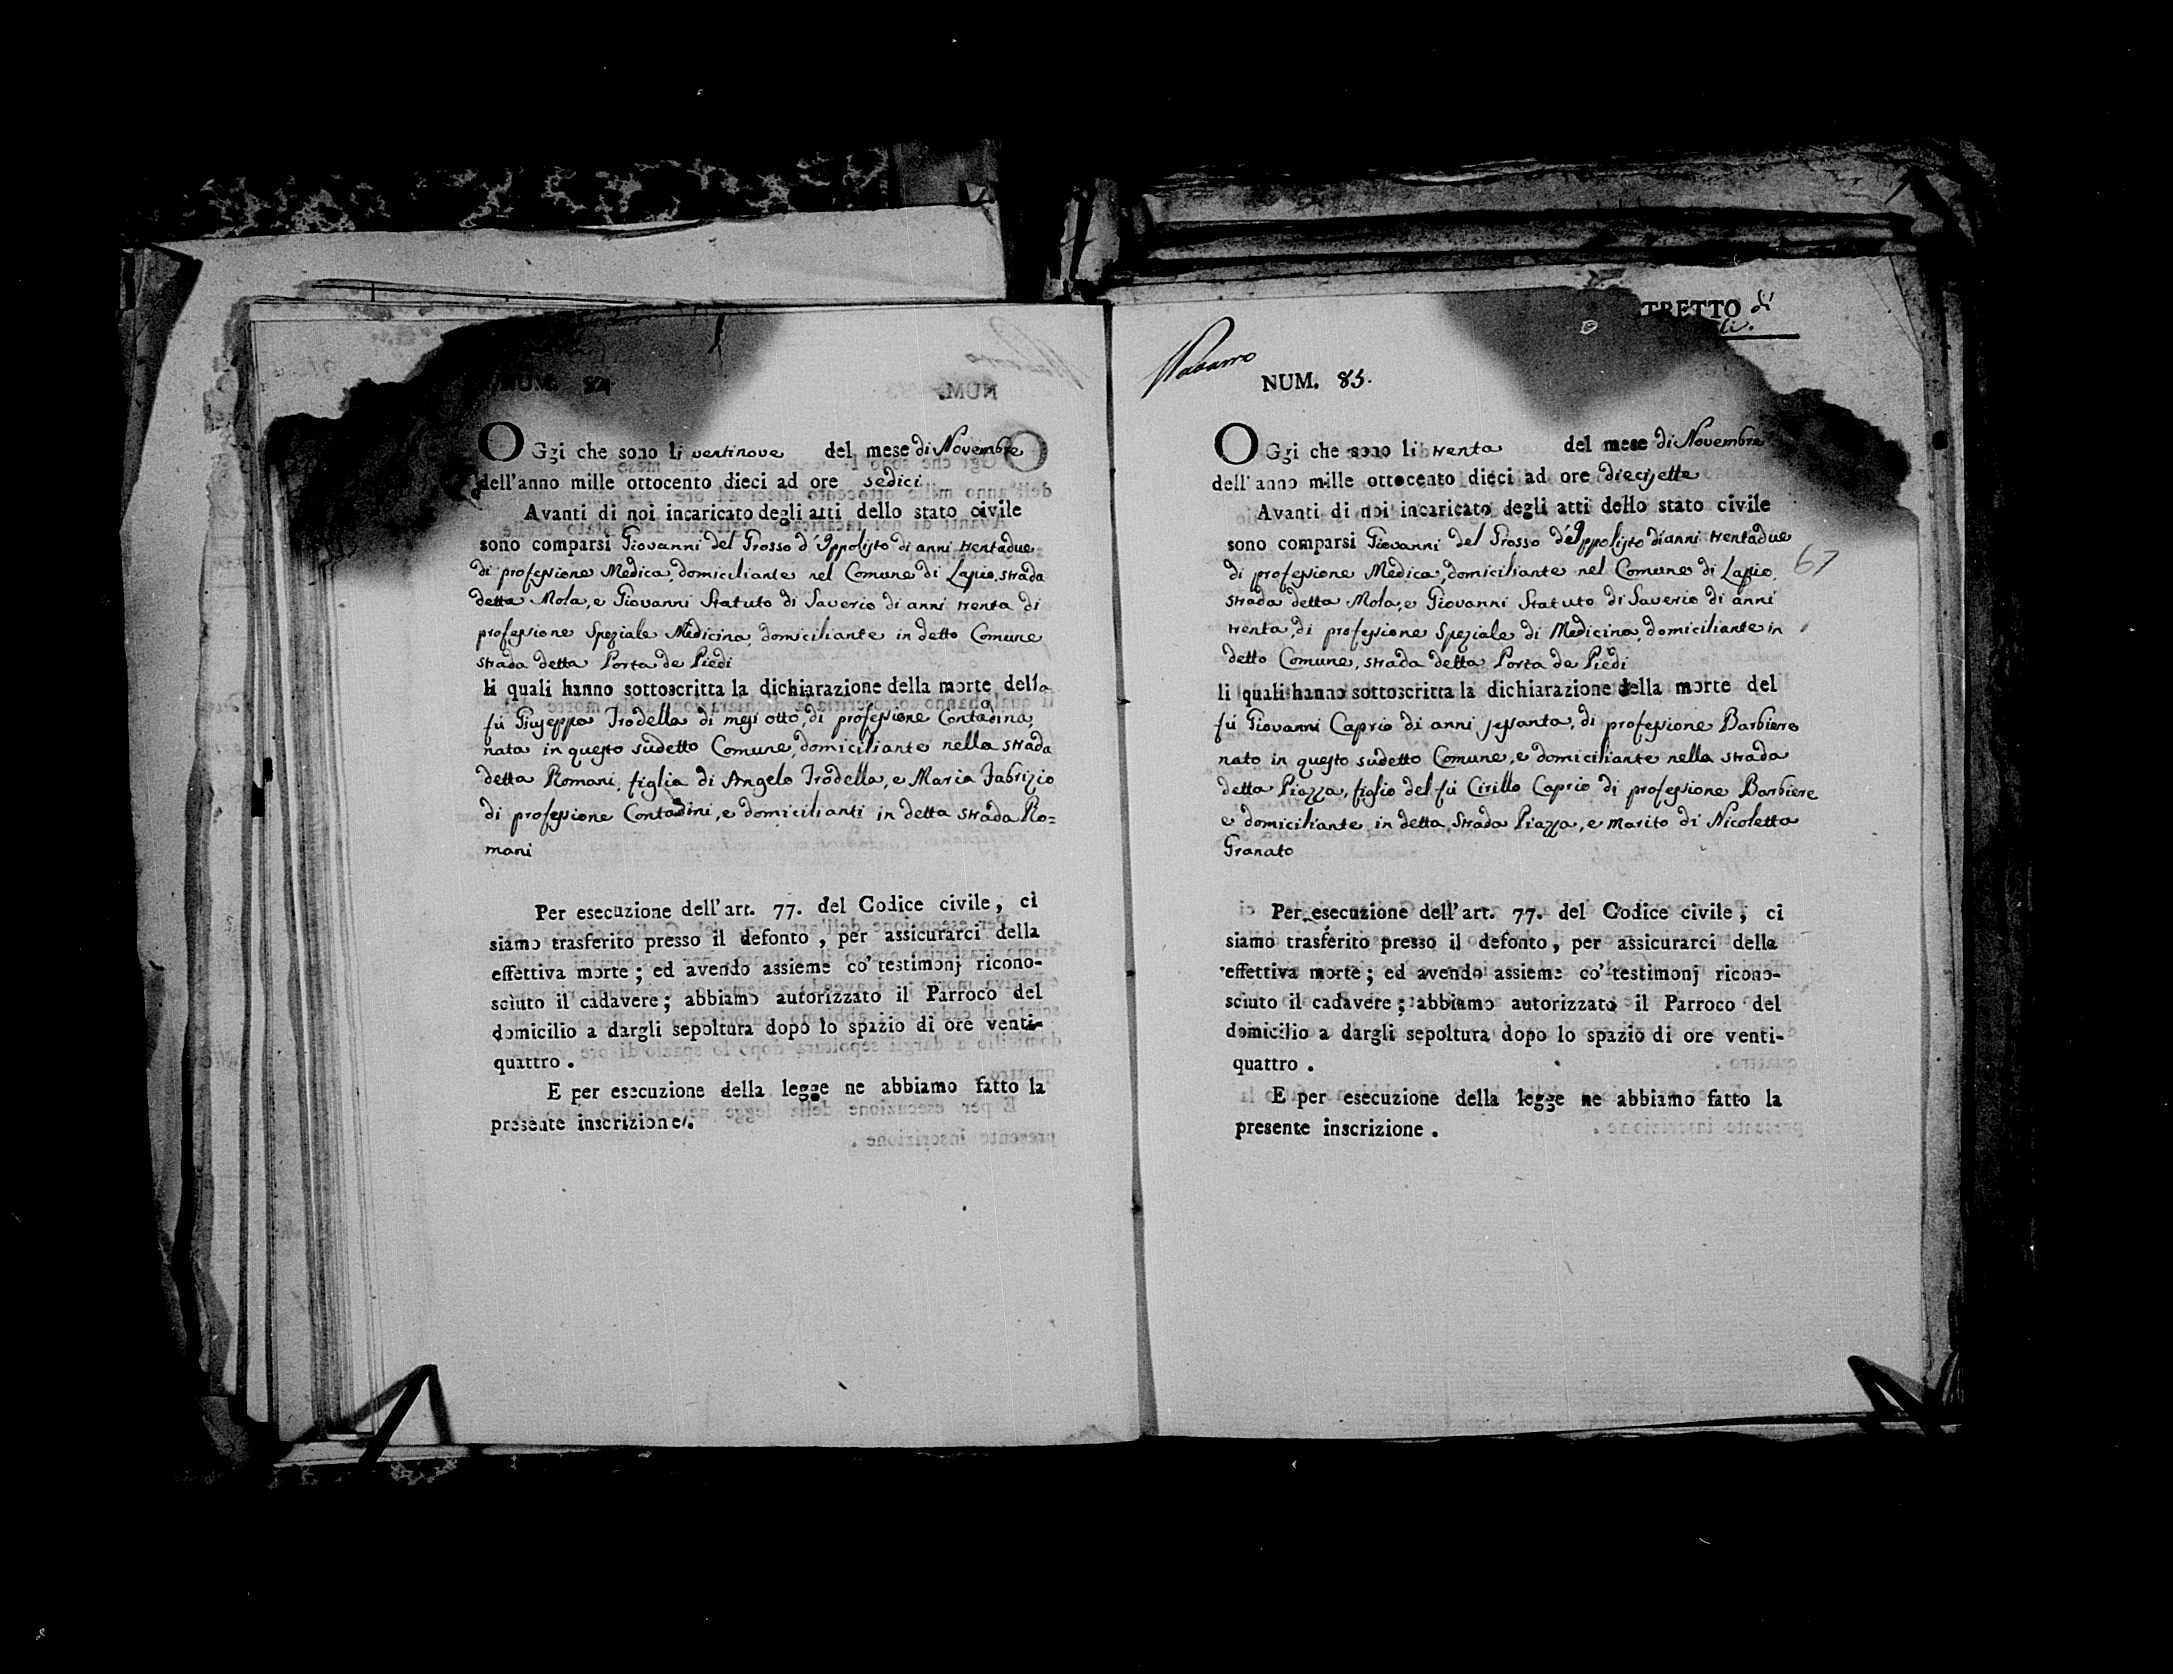 NUM. 84.
OGgi che sono li ventinove del mese di Novembre
dell'anno mille ottocento dieci ad ore sedici
Avanti di noi incaricato degli atti dello stato civile
sono comparsi Giovanni del Grosso d'Ippolisto di anni trentadue
di professione Medica, domiciliante nel Comune di Lapio, strada
detta Mola, e Giovanni Statuto di Saverio di anni trenta di
professione Speziale Medicina, domiciliante in detto Comune
strada detta Porta de Piedi
li quali hanno sottoscritta la dichiarazione della morte della
fù Giuseppa Trodella di mesi otto, di professione Contadina,
nata in questo sudetto Comune, domiciliante nella strada
detta Romani, figlia di Angelo Trodella, e Maria Fabrizio
di professione Contadini, e domicilianti in detta strada Ro=
mani
Per esecuzione dell'art. 77. del Codice civile, ci
siamo trasferito presso il defonto, per assicurarci della
effettiva morte; ed avendo assieme co' testimonj ricono-
sciuto il cadavere; abbiamo autorizzato il Parroco del
domicilio a dargli sepoltura dopo lo spazio di ore venti-
quattro.
E per esecuzione della legge ne abbiamo fatto la
presente inscrizione.
TRETTO di
li.
NUM. 85.
OGgi che sono li trenta del mese di Novembre
dell'anno mille ottocento dieci ad ore diecisette
Avanti di noi incaricato degli atti dello stato civile
sono comparsi Giovanni del Grosso d'Ippolisto di anni trentadue
di professione Medica, domiciliante nel Comune di Lapio, 67
strada detta Mola, e Giovanni Statuto di Saverio di anni
trenta, di professione Speziale di Medicina, domiciliante in
detto Comune, strada detta Porta de Piedi
li quali hanno sottoscritta la dichiarazione della morte del
fù Giovanni Caprio di anni sessanta, di professione Barbiere
nato in questo sudetto Comune, e domiciliante nella strada
detta Piazza, figlio del fù Cirillo Caprio di professione Barbiere
e domiciliante in detta Strada Piazza, e marito di Nicoletta
Granato
Per esecuzione dell'art. 77. del Codice civile, ci
siamo trasferito presso il defonto, per assicurarci della
effettiva morte; ed avendo assieme co' testimonj ricono-
sciuto il cadavere; abbiamo autorizzato il Parroco del
domicilio a dargli sepoltura dopo lo spazio di ore venti-
quattro.
E per esecuzione della legge ne abbiamo fatto la
presente inscrizione.